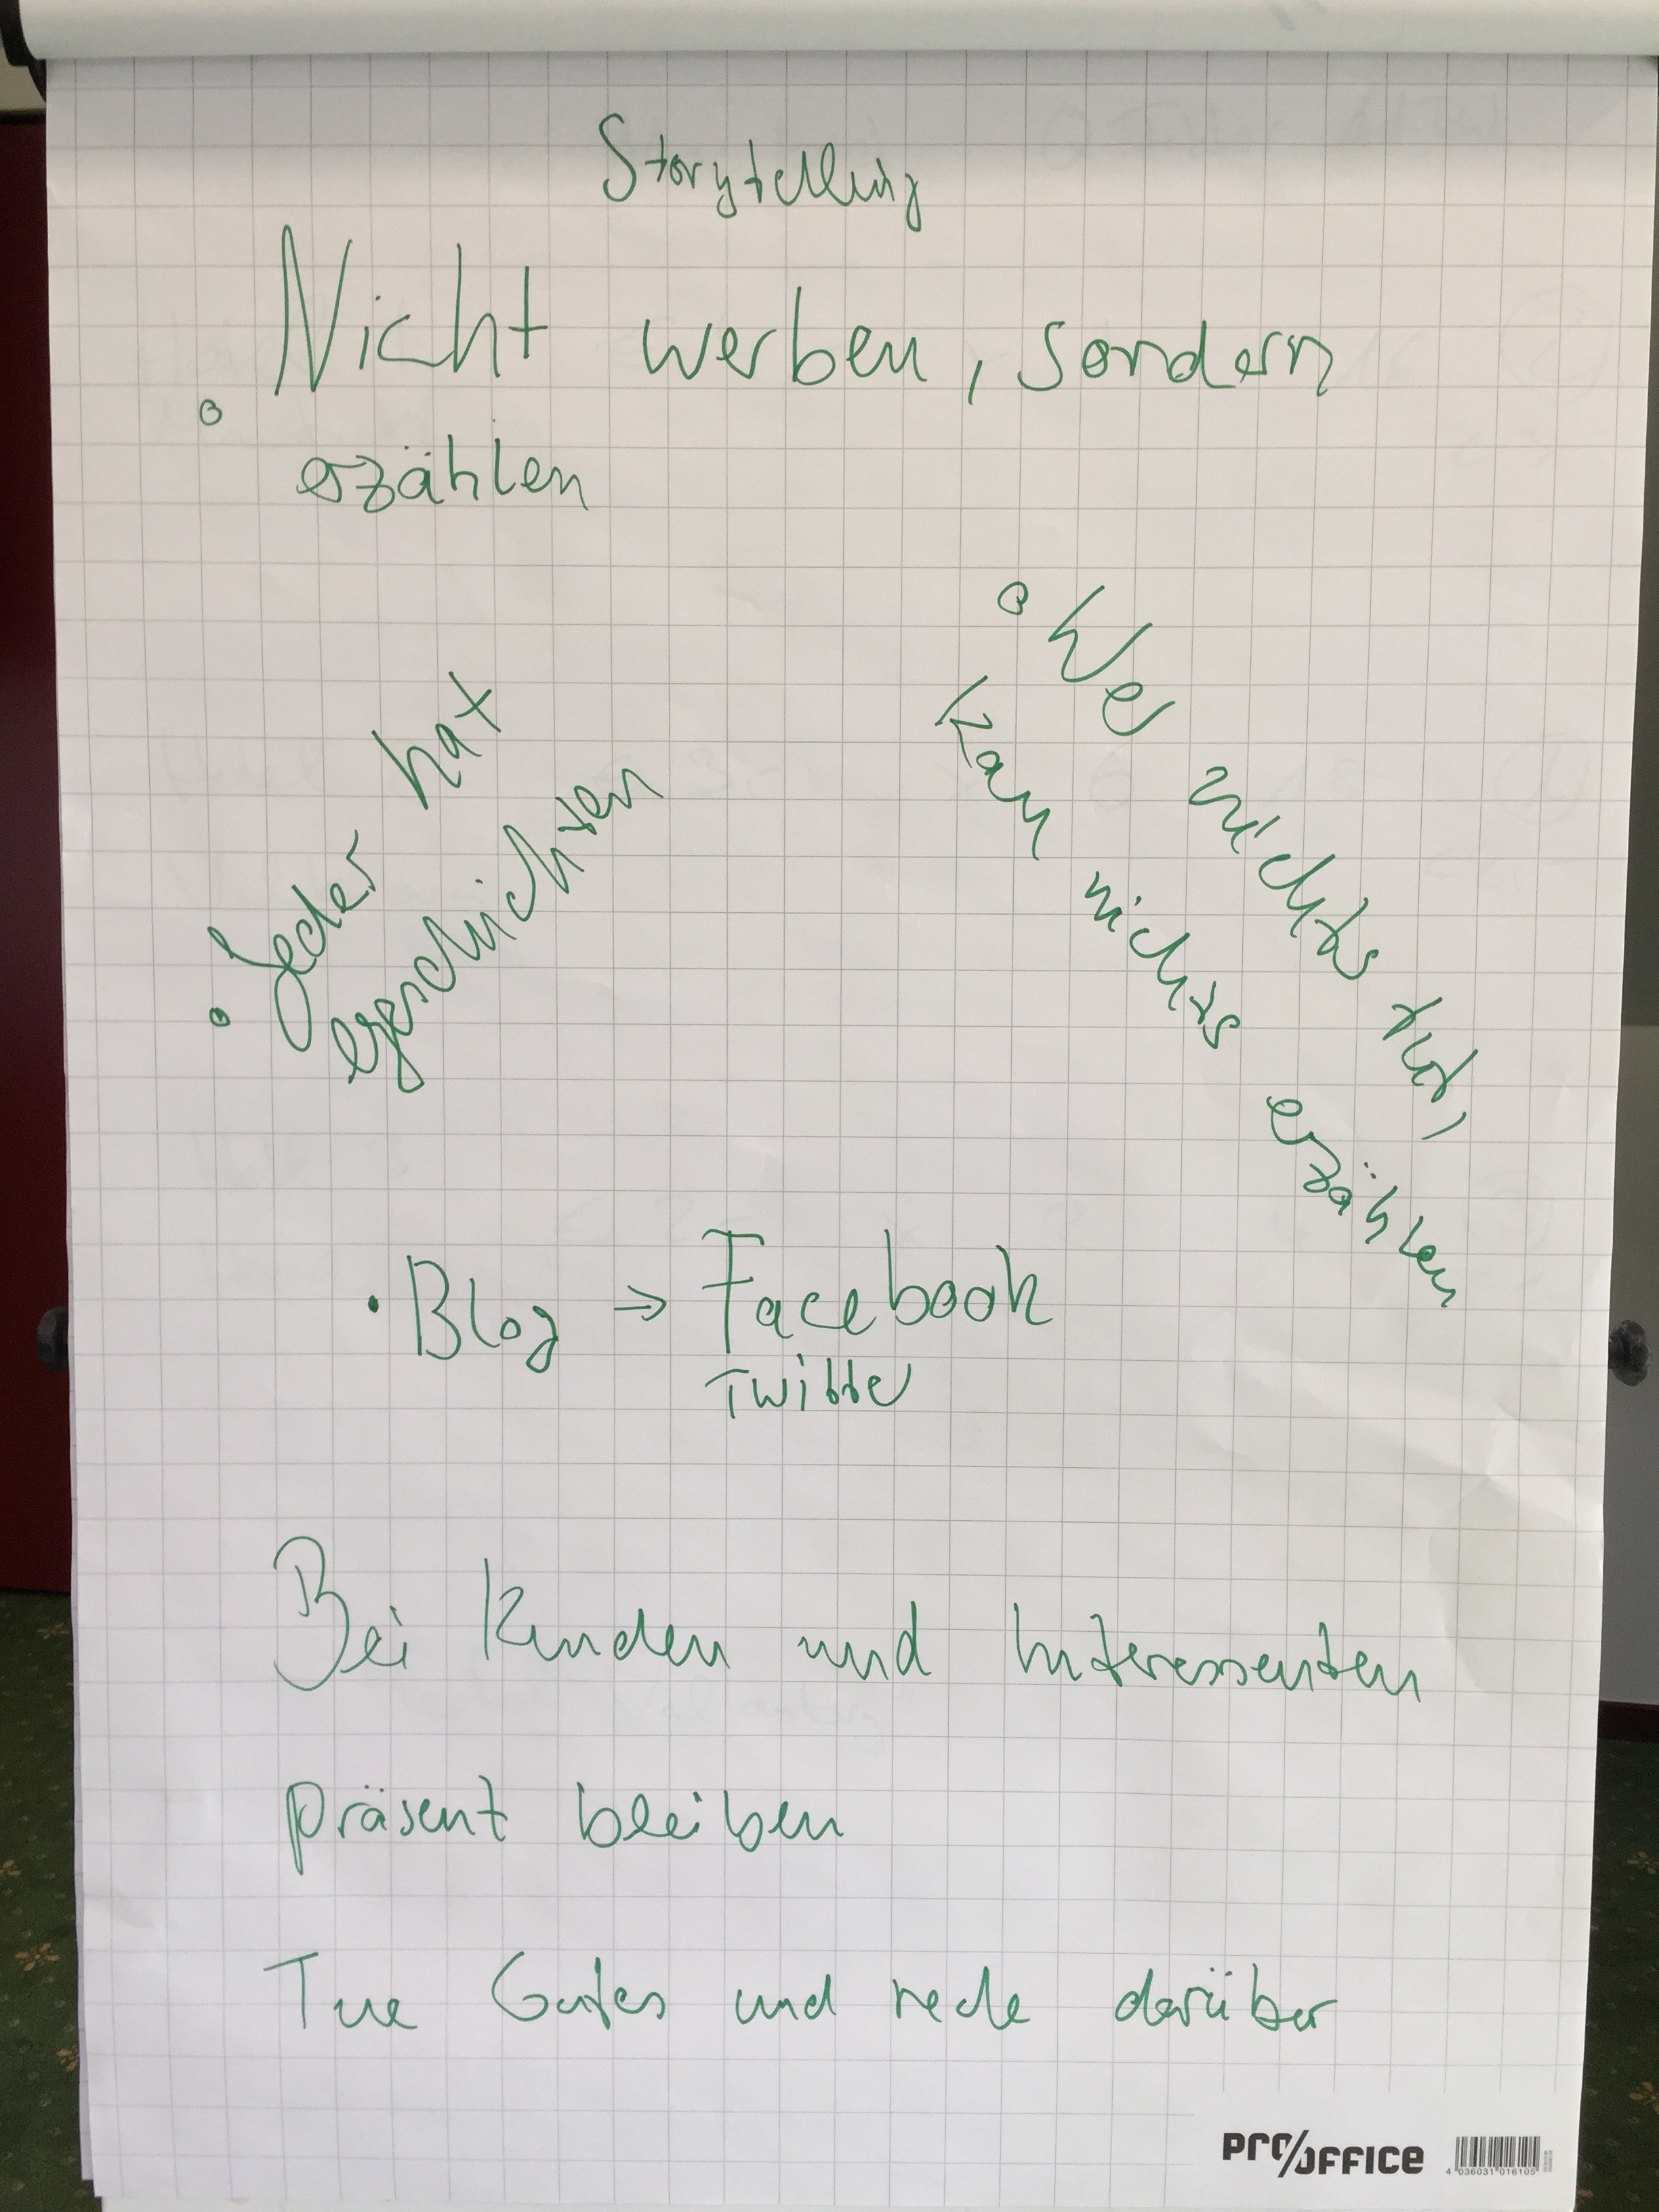 Storytelling
Nicht werben, sondern
erzählen
Jeder hat
Geschichten
Wer nichts tut,
kann nichts erzählen
Blog → Facebook
Twitter
Bei Kunden und Interessenten
präsent bleiben
Tue Gutes und rede darüber
PRO/OFFICE
4 036031 016105